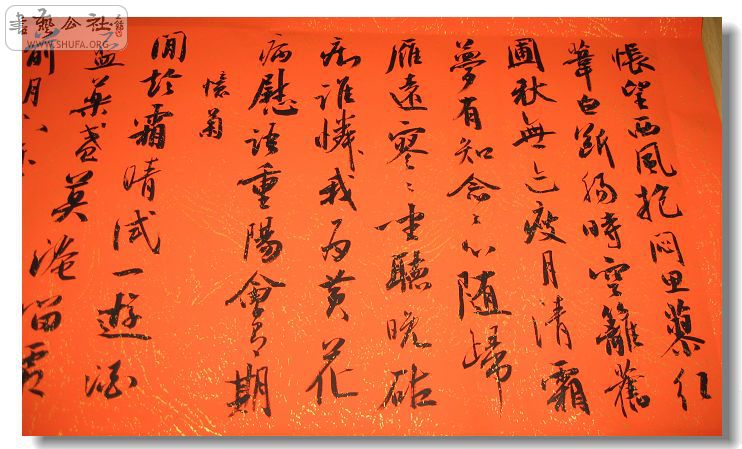 悵望西風抱悶思蓼紅
葦白斷腸時空籬舊
圃秋無迹瘦月清霜
夢有知念〻心随歸
雁遠寥〻坐聽晚砧
痴誰憐我為黄花
病慰語重陽會有期
憶菊
閒趁霜晴試一遊酒
盃藥盞莫淹留霜
前月下
書藝公社
WWW.SHUFA.ORG